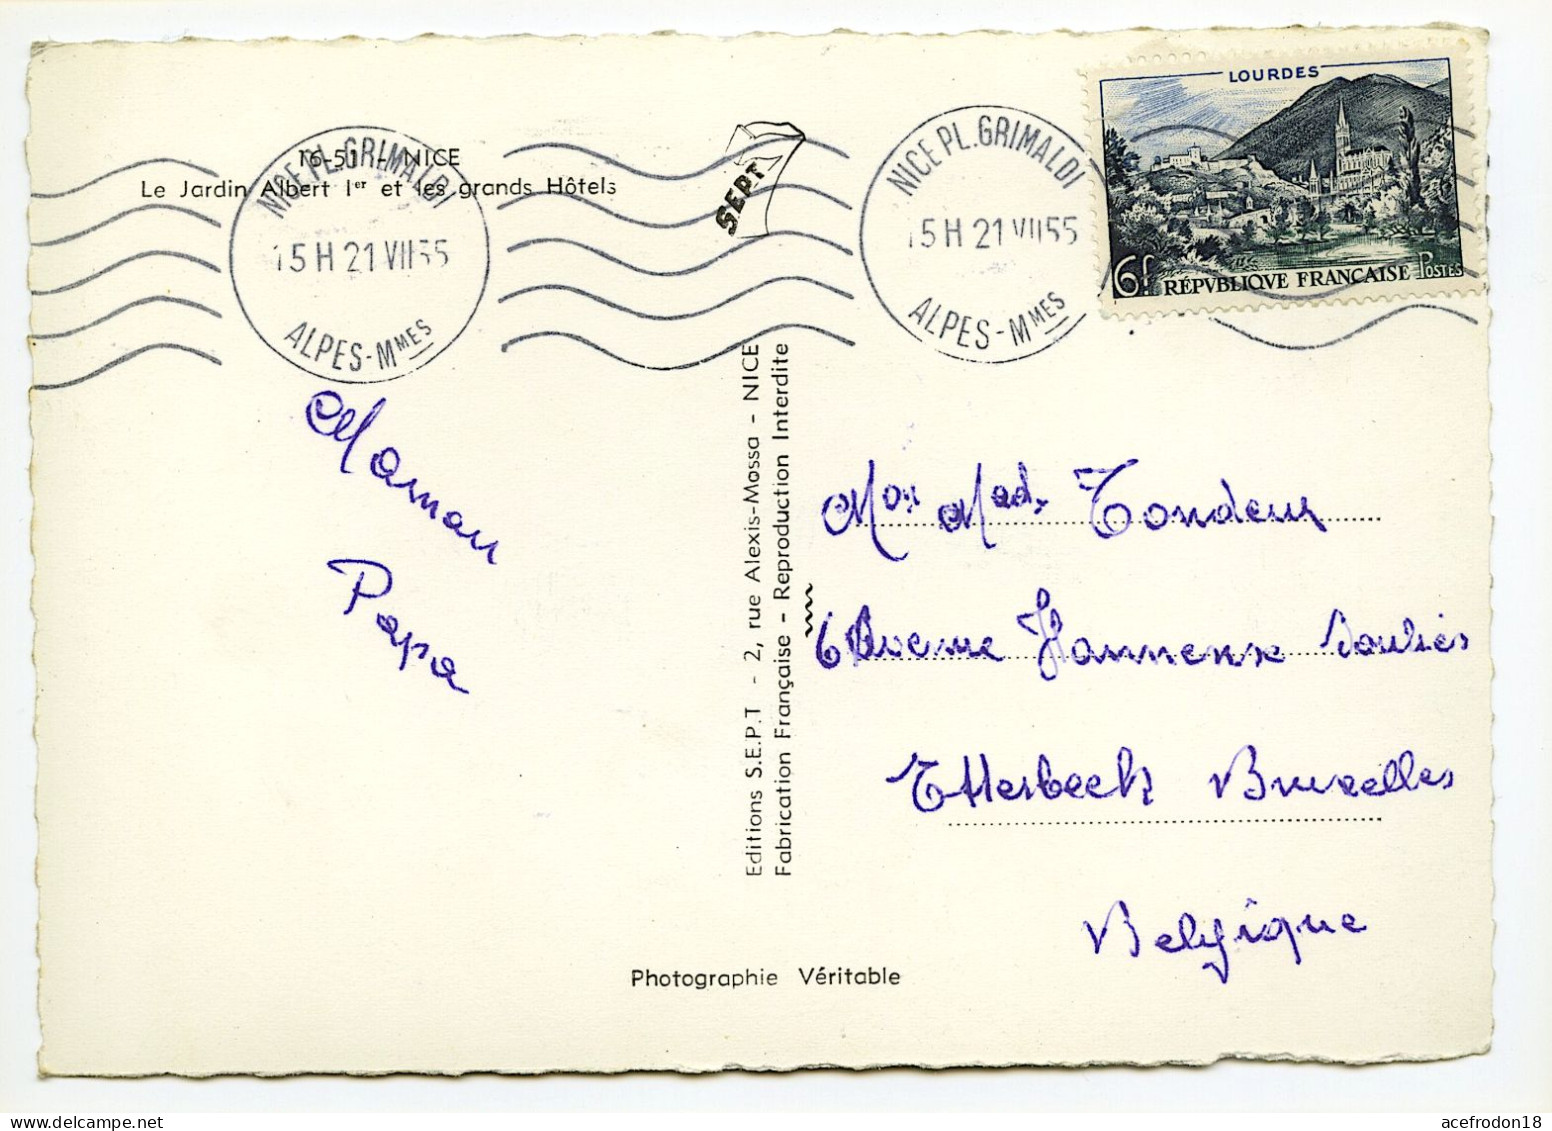 16-51 - NICE
Le Jardin Albert Ier et les grands Hôtels
NICE PL. GRIMALDI
15H 21 VII 55
ALPES-MMES
SEPT
NICE PL. GRIMALDI
15H 21 VII 55
ALPES-MMES
LOURDES
6f RÉPVBLIQVE FRANÇAISE POSTES
Maman
Papa
Editions S.E.P.T - 2, rue Alexis-Mossa - NICE
Fabrication Française - Reproduction Interdite
Mad. Tondeur
6 Avenue
Etterbeek Bruxelles
Belgique
Photographie Véritable
acefrodon18